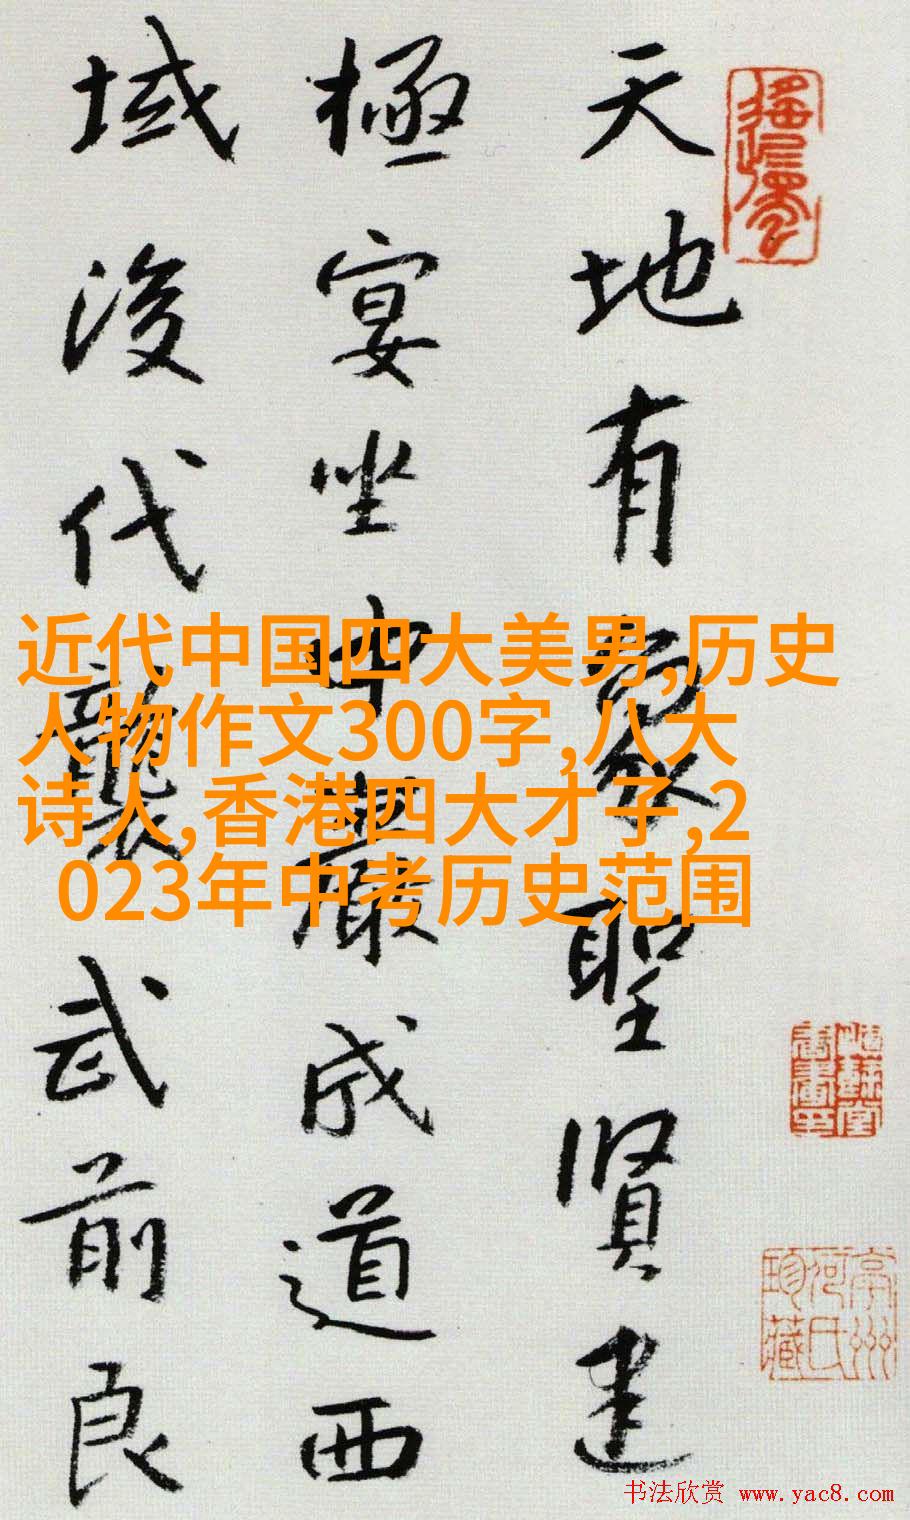 天地有象聖賢建
極宴坐中嚴成道西
域後代襲武前良
近代中国四大美男,历史
人物作文300字,八大
诗人,香港四大才子,2
023年中考历史范围
亭州
何氏
珍藏
书法欣赏 www.yac8.com